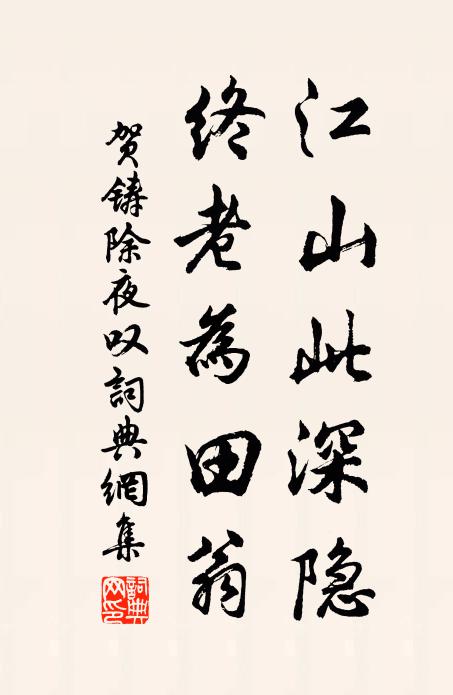 江山此深隐
终老為田翁
贺铸除夜叹詞典網集
詞典網印